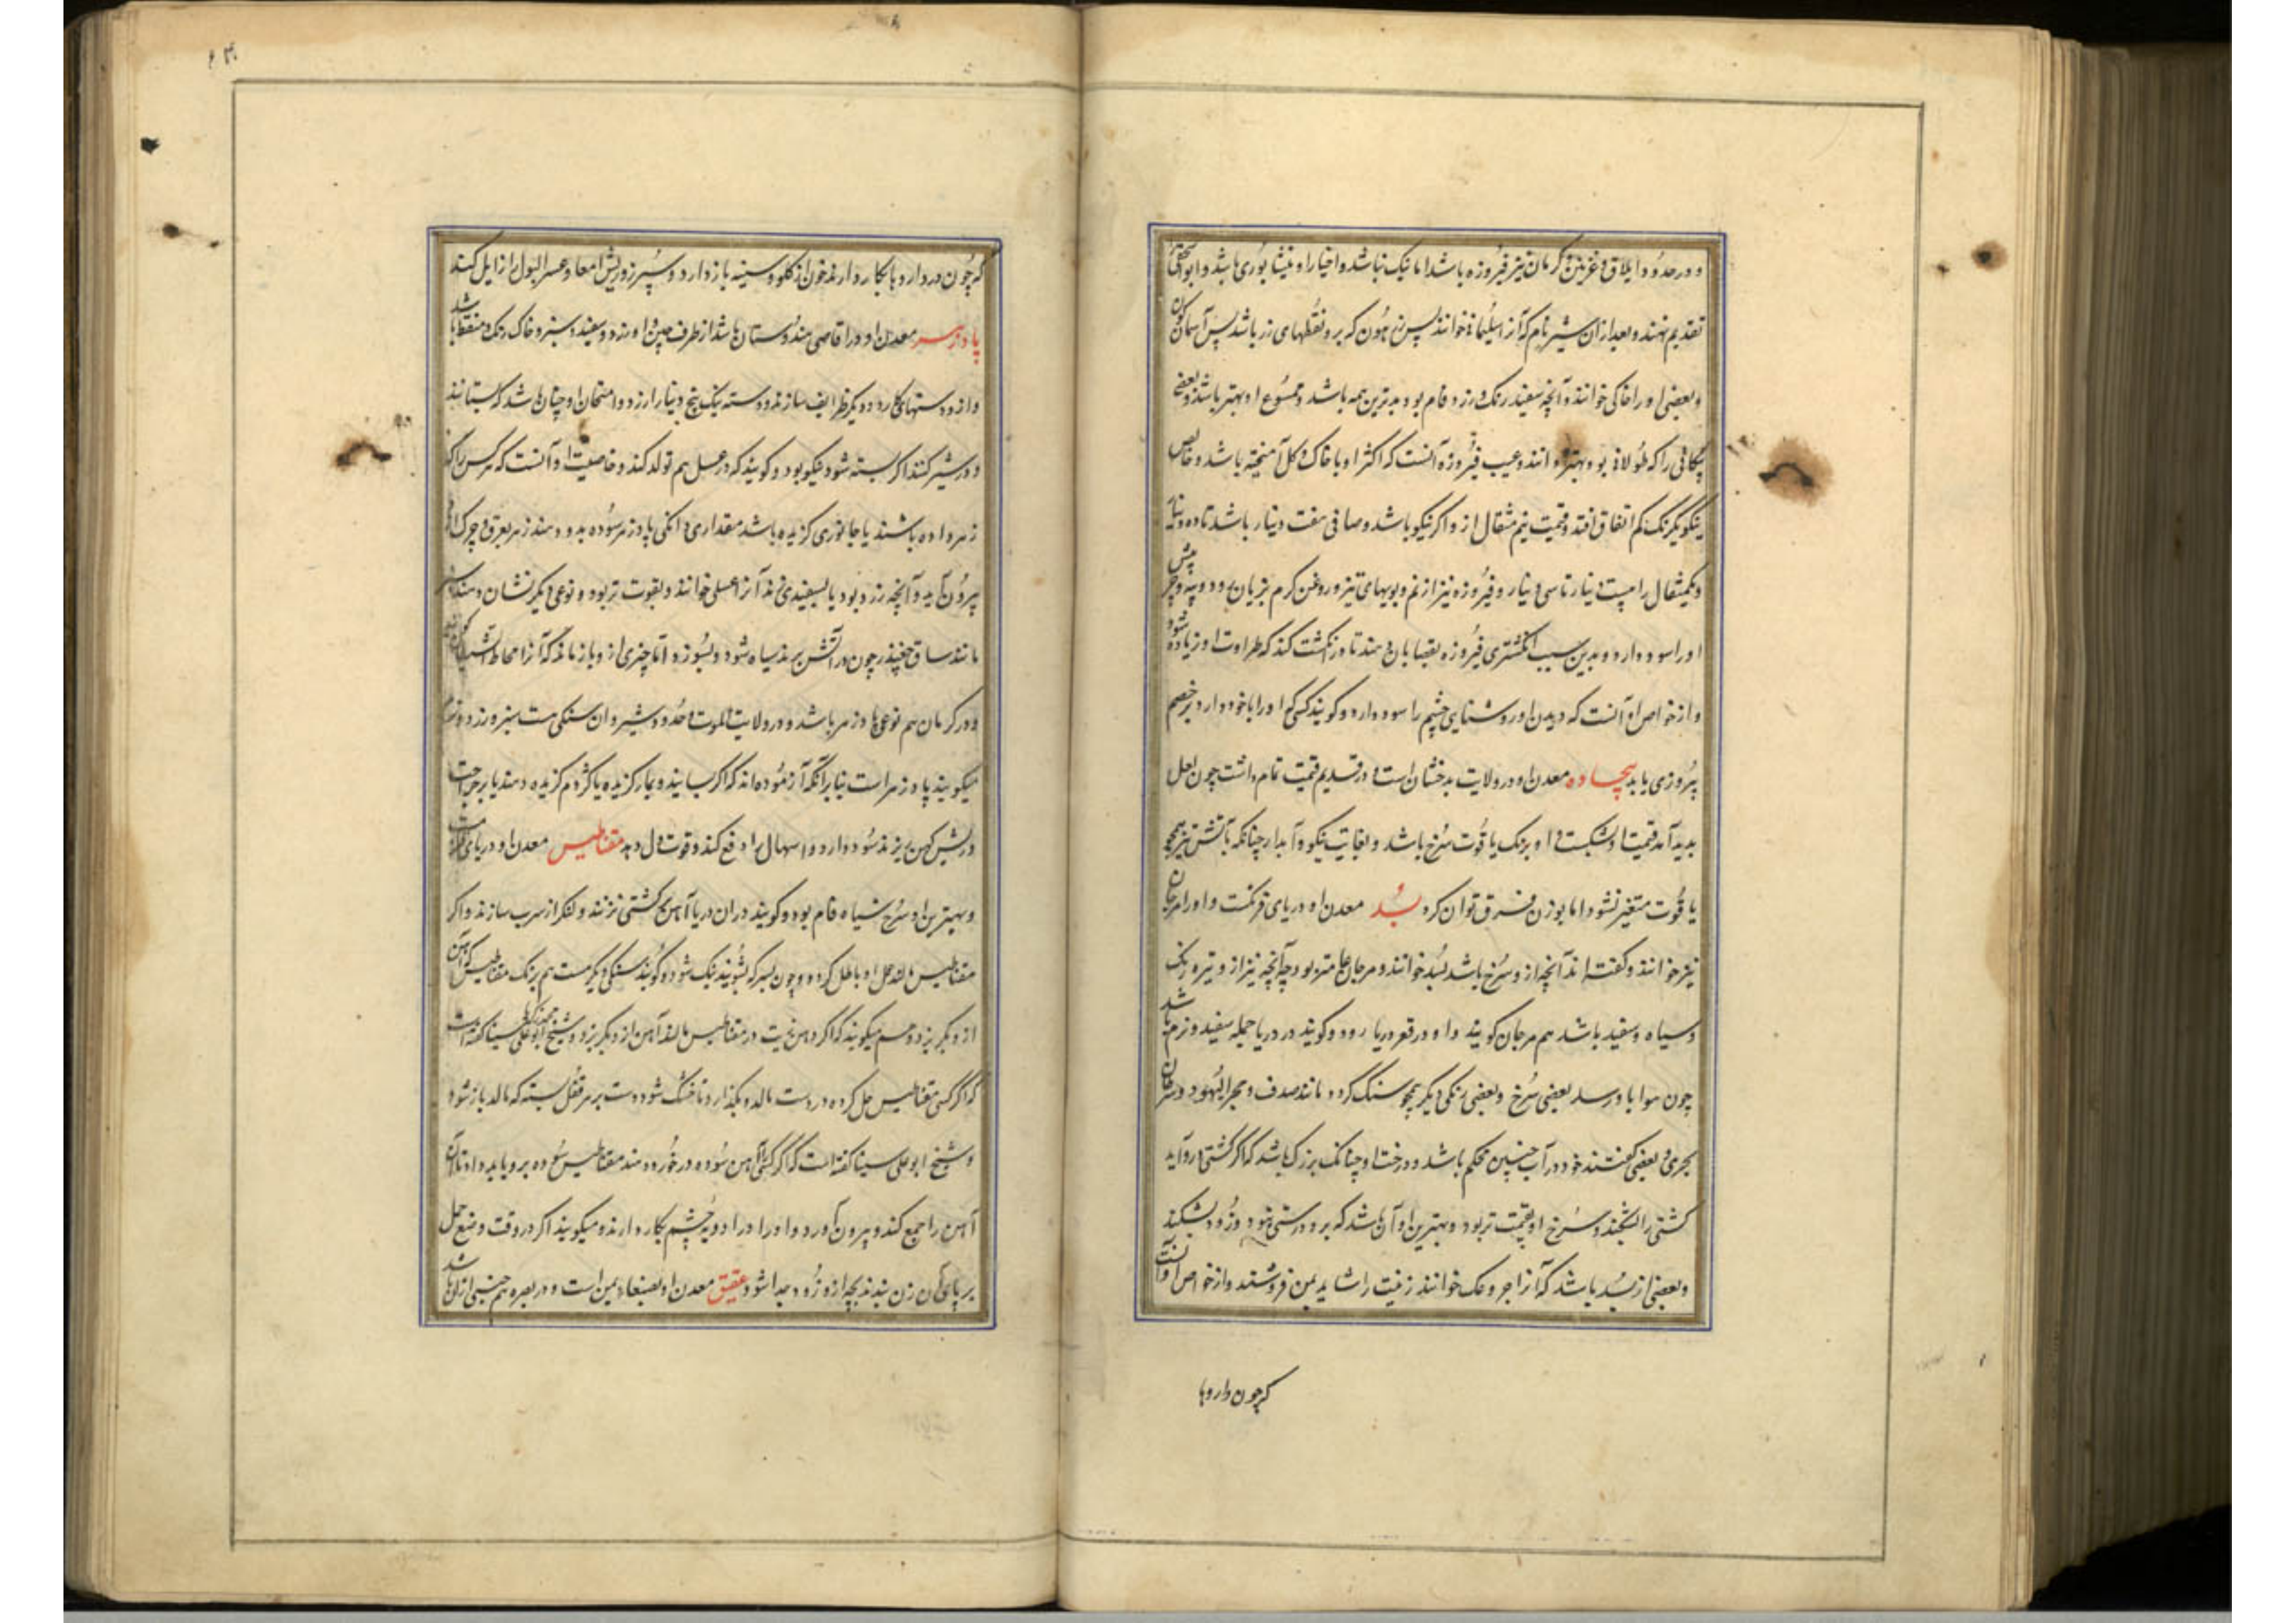 و در حدود ایلاق و غزنین و کرمان نیز فیروزه باشد اما نیک نباشد و اختیار او نیشابوری باشد و ابواسحقی
تقدیم نهند و بعد از آن شیرفام که آنرا سلیمانی خوانند پس زرهونی که برو نقطهای زر باشد پس آسمان کون
و بعضی او را خاکی خوانند و آنچه سفید رنک و زرد فام بود بدترین همه باشد و ممسوح او بهتر باشد و بعضی
پیکانی را که طولانی بود بهتر دانند و عیب فیروزه آنست که اکثر او با خاک و کل آمیخته باشد و خالص
نیکو یکرنک کم اتفاق افتد و قیمت نیم مثقال ازو اکر نیکو باشد و صافی هفت دینار باشد تا ده دینار
و یکمثقال را بیست دینار تا سی دینار و فیروزه نیز از نم و بویهای تیز و روغن کرم بزیان رود و پیه و چربش
او را سود دارد و بدین سبب انکشتری فیروزه بقصابان دهند تا در انکشت کند که طراوت او زیاده شود
و از خواص او آنست که دیدن او روشنایی چشم را سود دارد و کویند کسی که او را با خود دارد بر خصم
پیروزی یابد بیجاده معدن او در ولایت بدخشان است و در قدیم قیمت تمام داشت چون لعل
بدید آمد قیمت او شکست و او برنک یاقوت سرخ باشد و بغایت نیکو و آبدار چنانکه بآتش نیز همچو
یاقوت متغیر نشود اما بوزن فرق توان کرد بُسّد معدن او دریای فرنکست و او را مرجان
نیز خوانند و کفته اند آنچه ازو سرخ باشد بسد خوانند و مرجان عامتر بود چه آنچه نیز ازو تیره رنک
و سیاه و سفید باشد هم مرجان کویند و او در قعر دریا روید و کویند در دریا جمله سفید و نرم باشد
چون هوا باو رسد بعضی سرخ و بعضی رنکی دیکر همچو سنک کردد مانند صدف و حجر الیهود و سرطان
بحری و بعضی کفتند خود در آب چنین محکم باشد و درخت او چنانک بزرک باشد که اکر کشتی برو آید
کشتی را بشکند و سرخ او بقیمت تر بود و بهترین او آن باشد که برو درستی نبود و زود بشکند
و بعضی از بسد باشد که آنرا خوانند زینت را شاید بیمن فروشند و از خواص او آنست
که چون داروها
که چون در دارو بکار دارند خون از کلو و سینه باز دارد و سپرز و ریش امعا و عسر البول را زایل کند
پادزهر معدن او در اقاصی هندوستان باشد از طرف چین و او زرد و سفید و سبز و خاک رنک و منقط باشد
و ازو دستهای کارد و دیکر ظرایف سازند و دسته یک پنج دینار ارزد و امتحان او چنان باشد که بستانند
و در شیر کنند اکر بسته شود نیکو بود و کویند که در عسل هم تولد کند و خاصیت او آنست که هر کس را که
زهر داده باشند یا جانوری کزیده باشد مقداری دانکی پادزهر سوده بدو دهند زهر بعرق و چرک
بیرون آید و آنچه زرد بود یا بسفیدی زند آنرا عسلی خوانند و بقوت تر بود و نوعی دیکر نشان دهند
مانند ساق چغندر چون در آتش برند سیاه شود و بسوزد اما چیزی ازو باز ماند که آنرا مخاط الشیطان
و در کرمان هم نوعی پادزهر باشد و در ولایت الموت و حدود شیروان سنکی هست سبز و زرد و
میکویند پادزهر است بنا بر آنکه آزموده اند که اکر بسایند و بمار کزیده یا کژدم کزیده دهند یا بر جراحت
و ریش کهن ریزند سود دارد و اسهال را دفع کند و قوت دل دهد مقناطیس معدن او دریای قلزم است
و بهترین او سرخ سیاه فام بود و کویند در آن دریا آهن بر کشتی نزنند و لنکر از سرب سازند و اکر
مقناطیس مالند عمل او باطل کردد و چون بسرکه بشویند نیک شود و کویند سنکی دیکر هست هم برنک مقناطیس که آهن
ازو بکریزد و هم میکویند که اکر دهن در مقناطیس مالند آهن ازو بکریزد و شیخ ابوعلی سینا کفته است
که اکر کسی مقناطیس حل کرده در دست مالد و بکذارد تا خشک شود دست بر هر قفل بسته که مالد باز شود
و شیخ ابوعلی سینا کفته است که اکر کسی را آهن سوده در خورد دهند مقناطیس سوده برو باید داد تا آن
آهن را جمع کند و بیرون آورد و او را در ادویه چشم بکار دارند و میکویند اکر در وقت وضع حمل
بر پای آن زن بندند بچه ازو زود جدا شود عقیق معدن او بصنعاء یمن است و در بصره هم جنسی از آن باشد